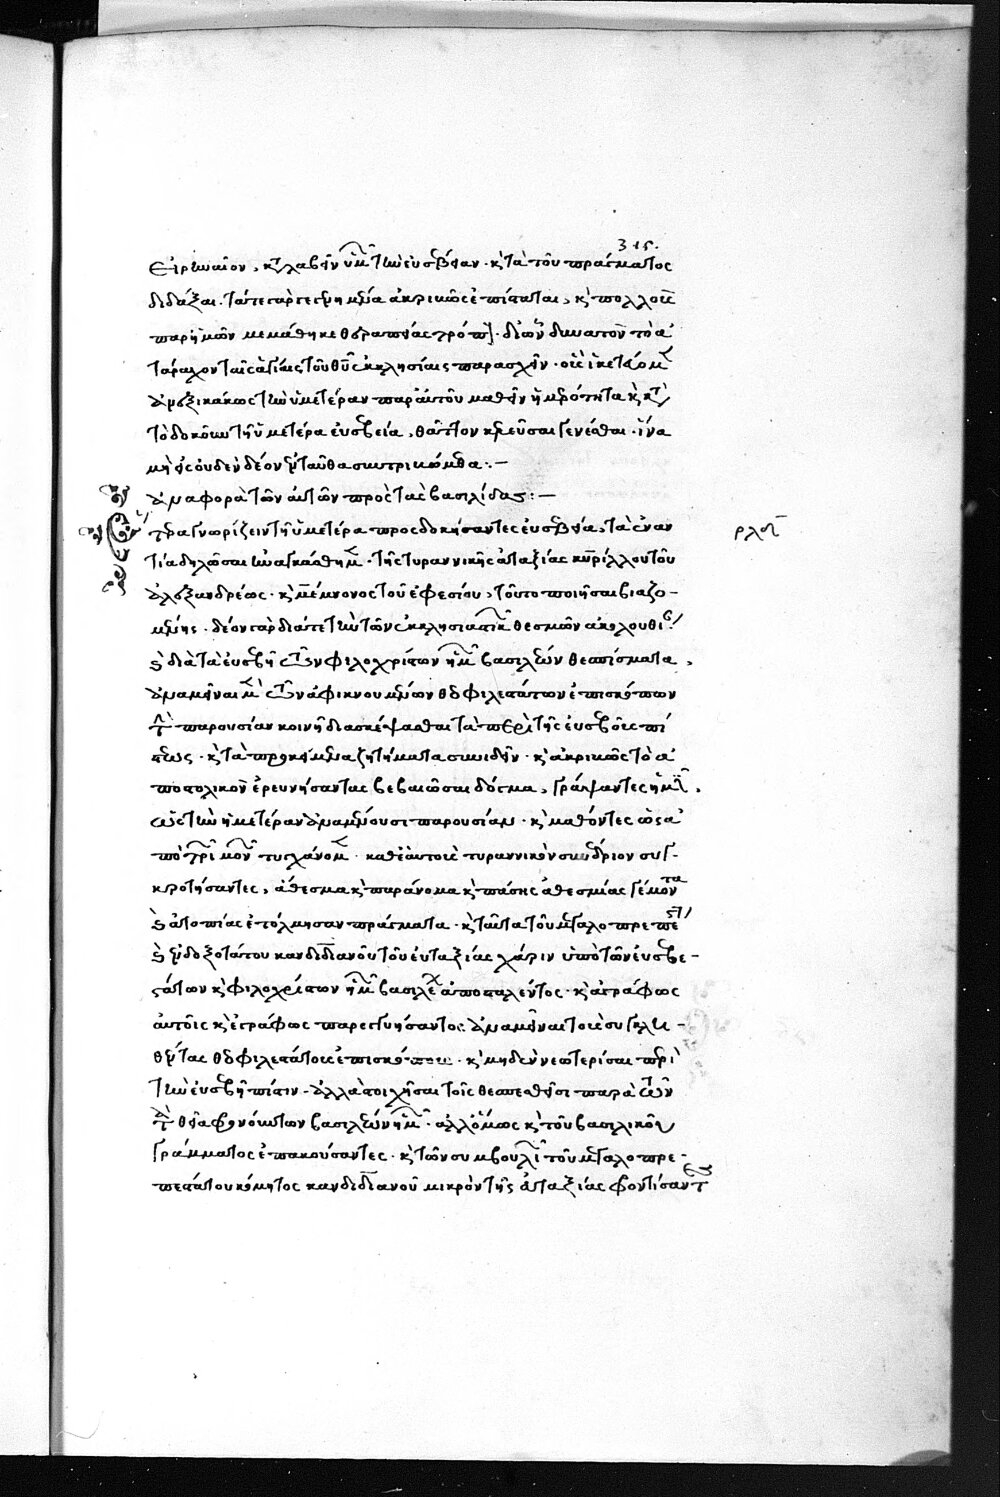 315.
Εἰρηναῖον, κ(αὶ) λαβεῖν ὑμῶν τὴν εὐσέβειαν· κ(αὶ) τὰ τοῦ πράγματος
διδάξαι. τά τε γὰρ γεγενημένα ἀκριβῶς ἐπίσταται, κ(αὶ) πολλοὺς
παρ' ἡμῶν μεμάθηκε θεραπείας τρόπους· δι' ὧν δυνατὸν τὸ ἀ
τάραχον ταῖς ἁγίαις τοῦ θ(εο)ῦ ἐκκλησίαις παρασχεῖν· οὓς ἱκετεύομεν
ἀνεξικάκως τὴν ὑμετέραν παρ' αὐτοῦ μαθεῖν ἡμερότητα κ(αὶ)
τὸ δοκοῦν τῇ ὑμετέρα εὐσεβεία, θᾶττον κελεῦσαι γενέσθαι· ἵνα
μὴ εἰς οὐδὲν δέον ἐνταῦθα συντριβώμεθα:–
Ἀναφορὰ τῶν αὐτῶν πρὸς τὰς βασιλίδας:–
γνωρίζειν τῇ ὑμετέρα προσδοκήσαντες εὐσεβεία, τὰ ἐναν
ρλθ
τία δηλῶσαι ἠναγκάσθημεν· τῆς τυραννικῆς ἀταξίας κυρίλλου τοῦ
ἀλεξανδρέως· κ(αὶ) μέμνονος τοῦ ἐφεσίου, τοῦτο ποιῆσαι βιαζο–
μένης· δέον γὰρ διά τε τὴν τῶν ἐκκλησιαστικῶν θεσμῶν ἀκολουθίαν
κ(αὶ) διὰ τὰ εὐσεβῆ τῶν φιλοχρίστων ἡμῶν βασιλέων θεσπίσματα,
ἀναμεῖναι μὲν τῶν ἀφικνουμένων θεοφιλεστάτων ἐπισκόπων
τὴν παρουσίαν κοινῇ διασκέψασθαι τὰ περὶ τῆς εὐσεβοῦς πί
στεως· κ(αὶ) τὰ προκείμενα ζητήματα συνιδεῖν· κ(αὶ) ἀκριβῶς τὸ ἀ
ποστολικὸν ἐρευνήσαντας βεβαιῶσαι δόγμα, γράψαντες ἡμῖν,
ὡς τὴν ἡμετέραν ἀναμένουσι παρουσίαν· κ(αὶ) μαθόντες ὡς ἀ
πὸ τριῶν μονῶν τυγχάνομεν· καθ' ἑαυτοὺς τυραννικὸν συνέδριον συγ–
κροτήσαντες, ἄθεσμα κ(αὶ) παράνομα κ(αὶ) πάσης ἀθεσμίας γέμοντα
κ(αὶ) ἀτοπίας ἐτόλμησαν πράγματα· κ(αὶ) ταῦτα τοῦ μεγαλοπρεπεστ
κ(αὶ) ἐνδοξοτάτου κανδιδιανοῦ τοῦ εὐταξίας χάριν ὑπὸ τῶν εὐσεβε–
στάτων κ(αὶ) φιλοχρίστων ἡμῶν βασιλέων ἀποσταλέντος· κ(αὶ) ἀγράφως
αὐτοῖς κ(αὶ) ἐγράφως παρεγγυήσαντος ἀναμεῖναι τοὺς συγκλη–
θέντας θεοφιλεστάτους ἐπισκόπους· κ(αὶ) μηδὲν νεωτερίσαι περὶ
τὴν εὐσεβῆ πίστιν· ἀλλὰ στοιχῆσαι τοῖς θεσπισθεῖσι παρὰ τῶν
τὰ θεῖα φρονούντων βασιλέων ἡμῶν· ἀλλ' ὅμως κ(αὶ) τοῦ βασιλικοῦ
γράμματος ἐπακούσαντες· κ(αὶ) τῶν συμβουλιῶν τοῦ μεγαλοπρε–
πεστάτου κόμητος κανδιδιανοῦ μικρὸν τῆς ἀταξίας φροντίσαντες